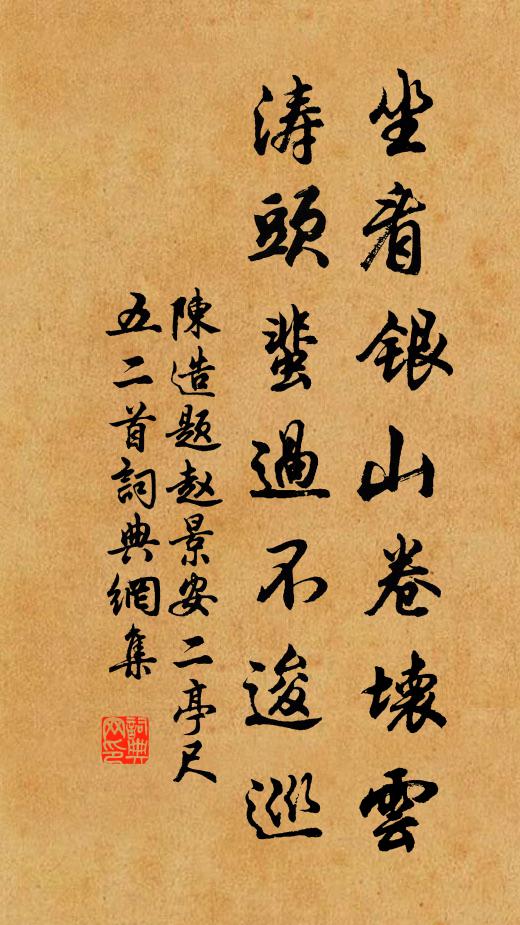 坐看銀山卷壞雲
濤頭蜚過不逡巡
陳造題赵景安二亭尺
五二首詞典網集
詞典網印